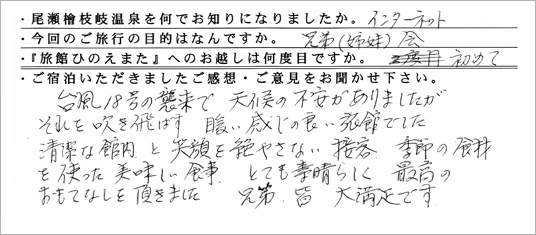 ・尾瀬檜枝岐温泉を何でお知りになりましたか。インターネット
・今回のご旅行の目的はなんですか。 兄弟(姉妹)会
・『旅館ひのえまた』へのお越しは何度目ですか。 初めて
・ご宿泊いただきましたご感想・ご意見をお聞かせ下さい。
台風18号の襲来で 天候の不安がありましたが
それを吹き飛ばす 暖い感じの良い旅館でした
清潔な館内 と 笑顔を絶やさない 接客 季節の食材
を使った 美味しい食事 とても素晴らしく 最高の
おもてなしを頂きました 兄弟 皆 大満足です